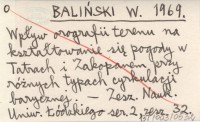 O BALIŃSKI W. 1969.
Wpływ orografii terenu na
kształtowanie się pogody w
Tatrach i Zakopanem przy
różnych typach cyrkulacji
barycznej. — Zesz. Nauk.
Uniw. Łódzkiego ser. 2, zesz. 32.